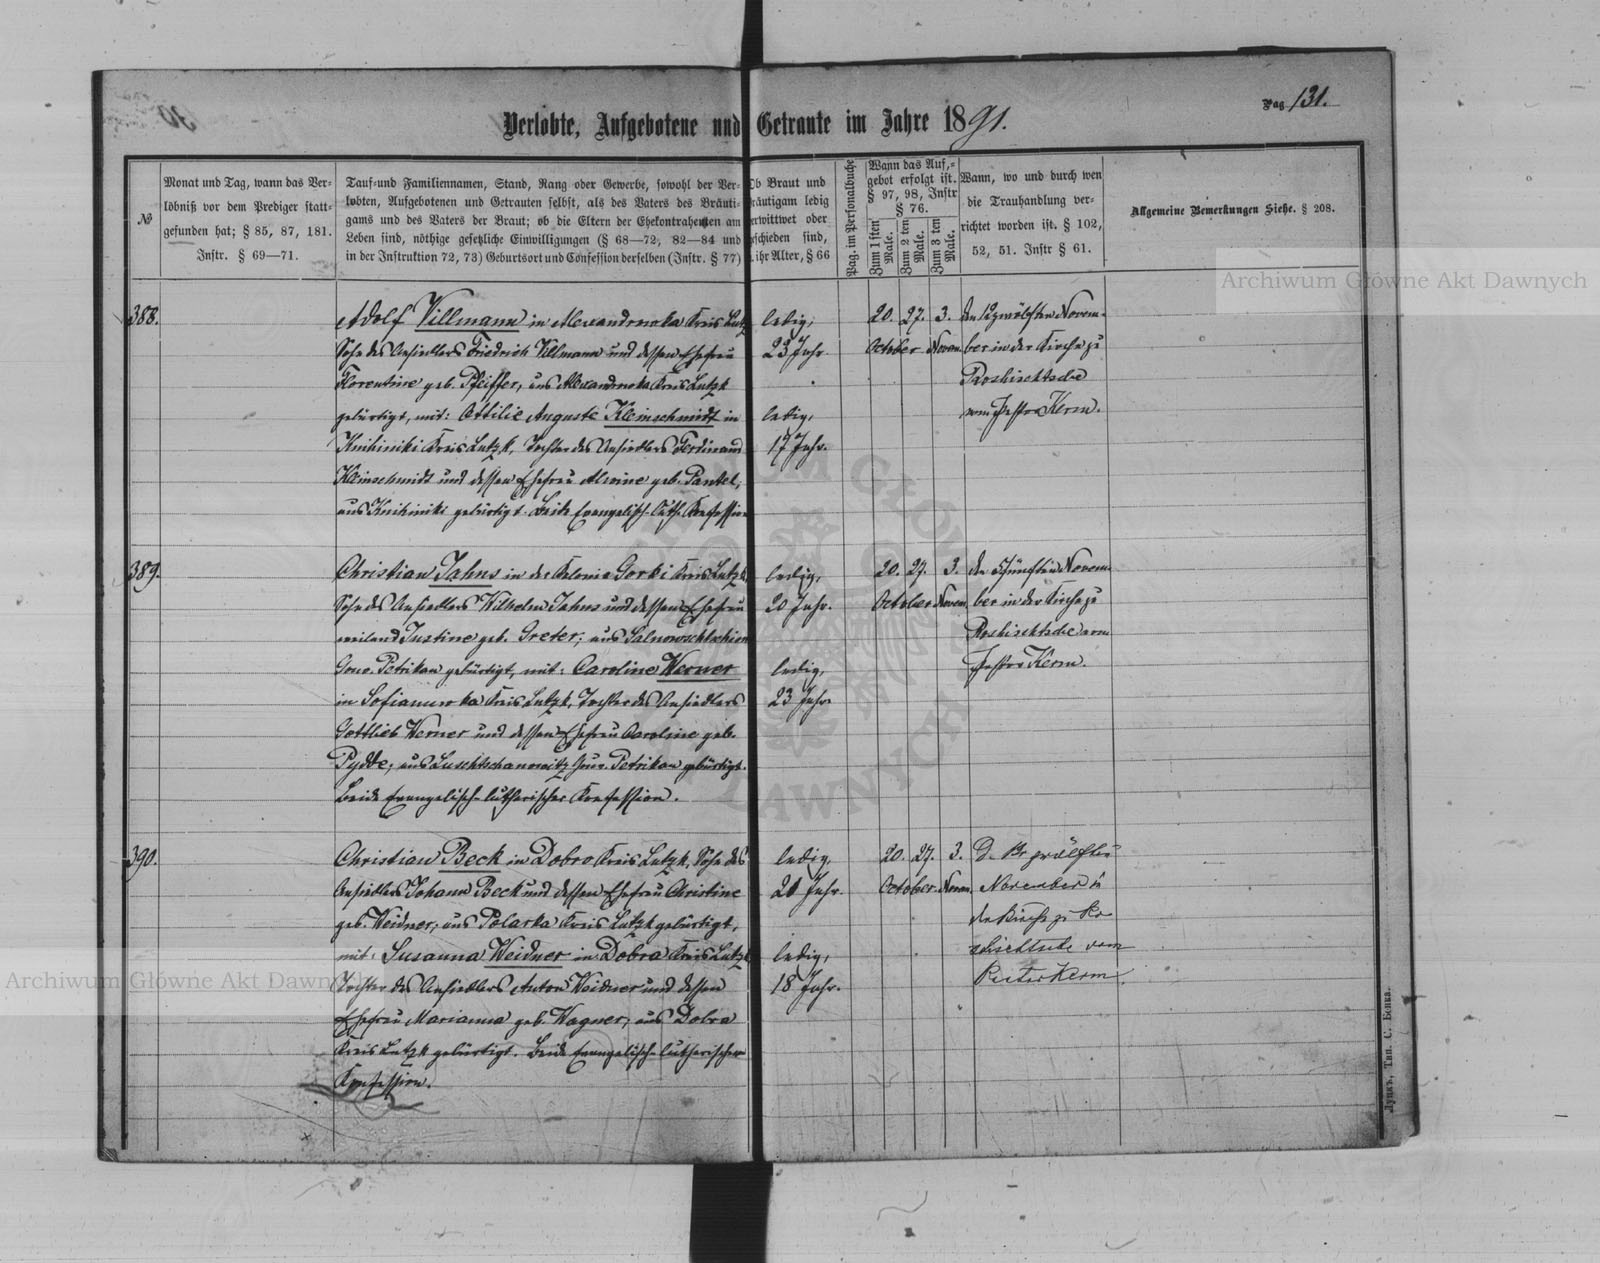 Pag 131.
Verlobte, Aufgebotene und Getraute im Jahre 1891.
№
Monat und Tag, wann das Ver-
löbniß vor dem Prediger statt-
gefunden hat; § 85, 87, 181.
Instr. § 69—71.
Tauf-und Familiennamen, Stand, Rang oder Gewerbe, sowohl der Ver-
lobten, Aufgebotenen und Getrauten selbst, als des Vaters des Bräuti-
gams und des Vaters der Braut; ob die Eltern der Ehekontrahenten am
Leben sind, nöthige gesetzliche Einwilligungen (§ 68—72, 82—84 und
in der Instruktion 72, 73) Geburtsort und Confession derselben (Instr. § 77)
Ob Braut und
räutigam ledig
erwittwet oder
eschieden sind,
ihr Alter, § 66
Pag. im Personalbuche
Wann das Auf-
gebot erfolgt ist.
§ 97, 98, Instr
§ 76.
Zum 1 sten Male.
Zum 2 ten Male.
Zum 3 ten Male.
Wann, wo und durch wen
die Trauhandlung ver-
richtet worden ist. § 102,
52, 51. Instr § 61.
Allgemeine Bemerkungen Siehe. § 208.
388.
Adolf Villmann in Alexandrowka Kreis Lutzk
Sohn des Ansiedlers Friedrich Villmann und dessen Ehefrau
Florentine geb. Pfeiffer, aus Alexandrowka Kreis Lutzk
gebürtigt, mit: Ottilie Auguste Kleinschmidt in
Knihiniki Kreis Lutzk, Tochter des Ansiedlers Ferdinand
Kleinschmidt und dessen Ehefrau Alwine geb. Pantel,
aus Knihiniki gebürtigt. Beide Evangelisch-Luth. Konfession
ledig,
23 Jahr.
ledig,
17 Jahr.
20. 27. 3.
October Novem.
den 12 zwölften Novem-
ber in der Kirche zu
Roshischtsche
vom Pastor Kerm.
389.
Christian Jahns in der Kolonie Gorki Kreis Lutzk
Sohn des Ansiedlers Wilhelm Jahns und dessen Ehefrau
weiland Justine geb. Greter, aus
Gouv. Petrikau gebürtigt, mit: Caroline Werner
in Sofianowka Kreis Lutzk, Tochter des Ansiedlers
Gottlieb Werner und dessen Ehefrau Caroline geb.
Pydde, aus Gouv. Petrikau gebürtigt.
Beide Evangelisch-lutherischer Konfession.
ledig,
20 Jahr.
ledig,
23 Jahr
20. 27. 3.
October Novem.
den 5 fünften Novem-
ber in der Kirche zu
Roshischtsche vom
Pastor Kerm.
390.
Christian Beck in Dobro Kreis Lutzk, Sohn des
Ansiedlers Johann Beck und dessen Ehefrau Christine
geb. Weidner, aus Polarka Kreis Lutzk gebürtigt,
mit: Susanna Weidner in Dobra Kreis Lutzk
Tochter des Ansiedlers Anton Weidner und dessen
Ehefrau Marianna geb. Wagner, aus Dobra
Kreis Lutzk gebürtigt. Beide Evangelisch-lutherischer
Konfession.
ledig,
Jahr.
ledig,
18 Jahr.
20. 27. 3.
October. Novem.
zwölften
November in
der Kirche zu Ro
schischtsche vom
Kerm
Луцкъ, Тип. С. Бонка.
Archiwum Główne Akt Dawnych
Archiwum Główne Akt Dawnych